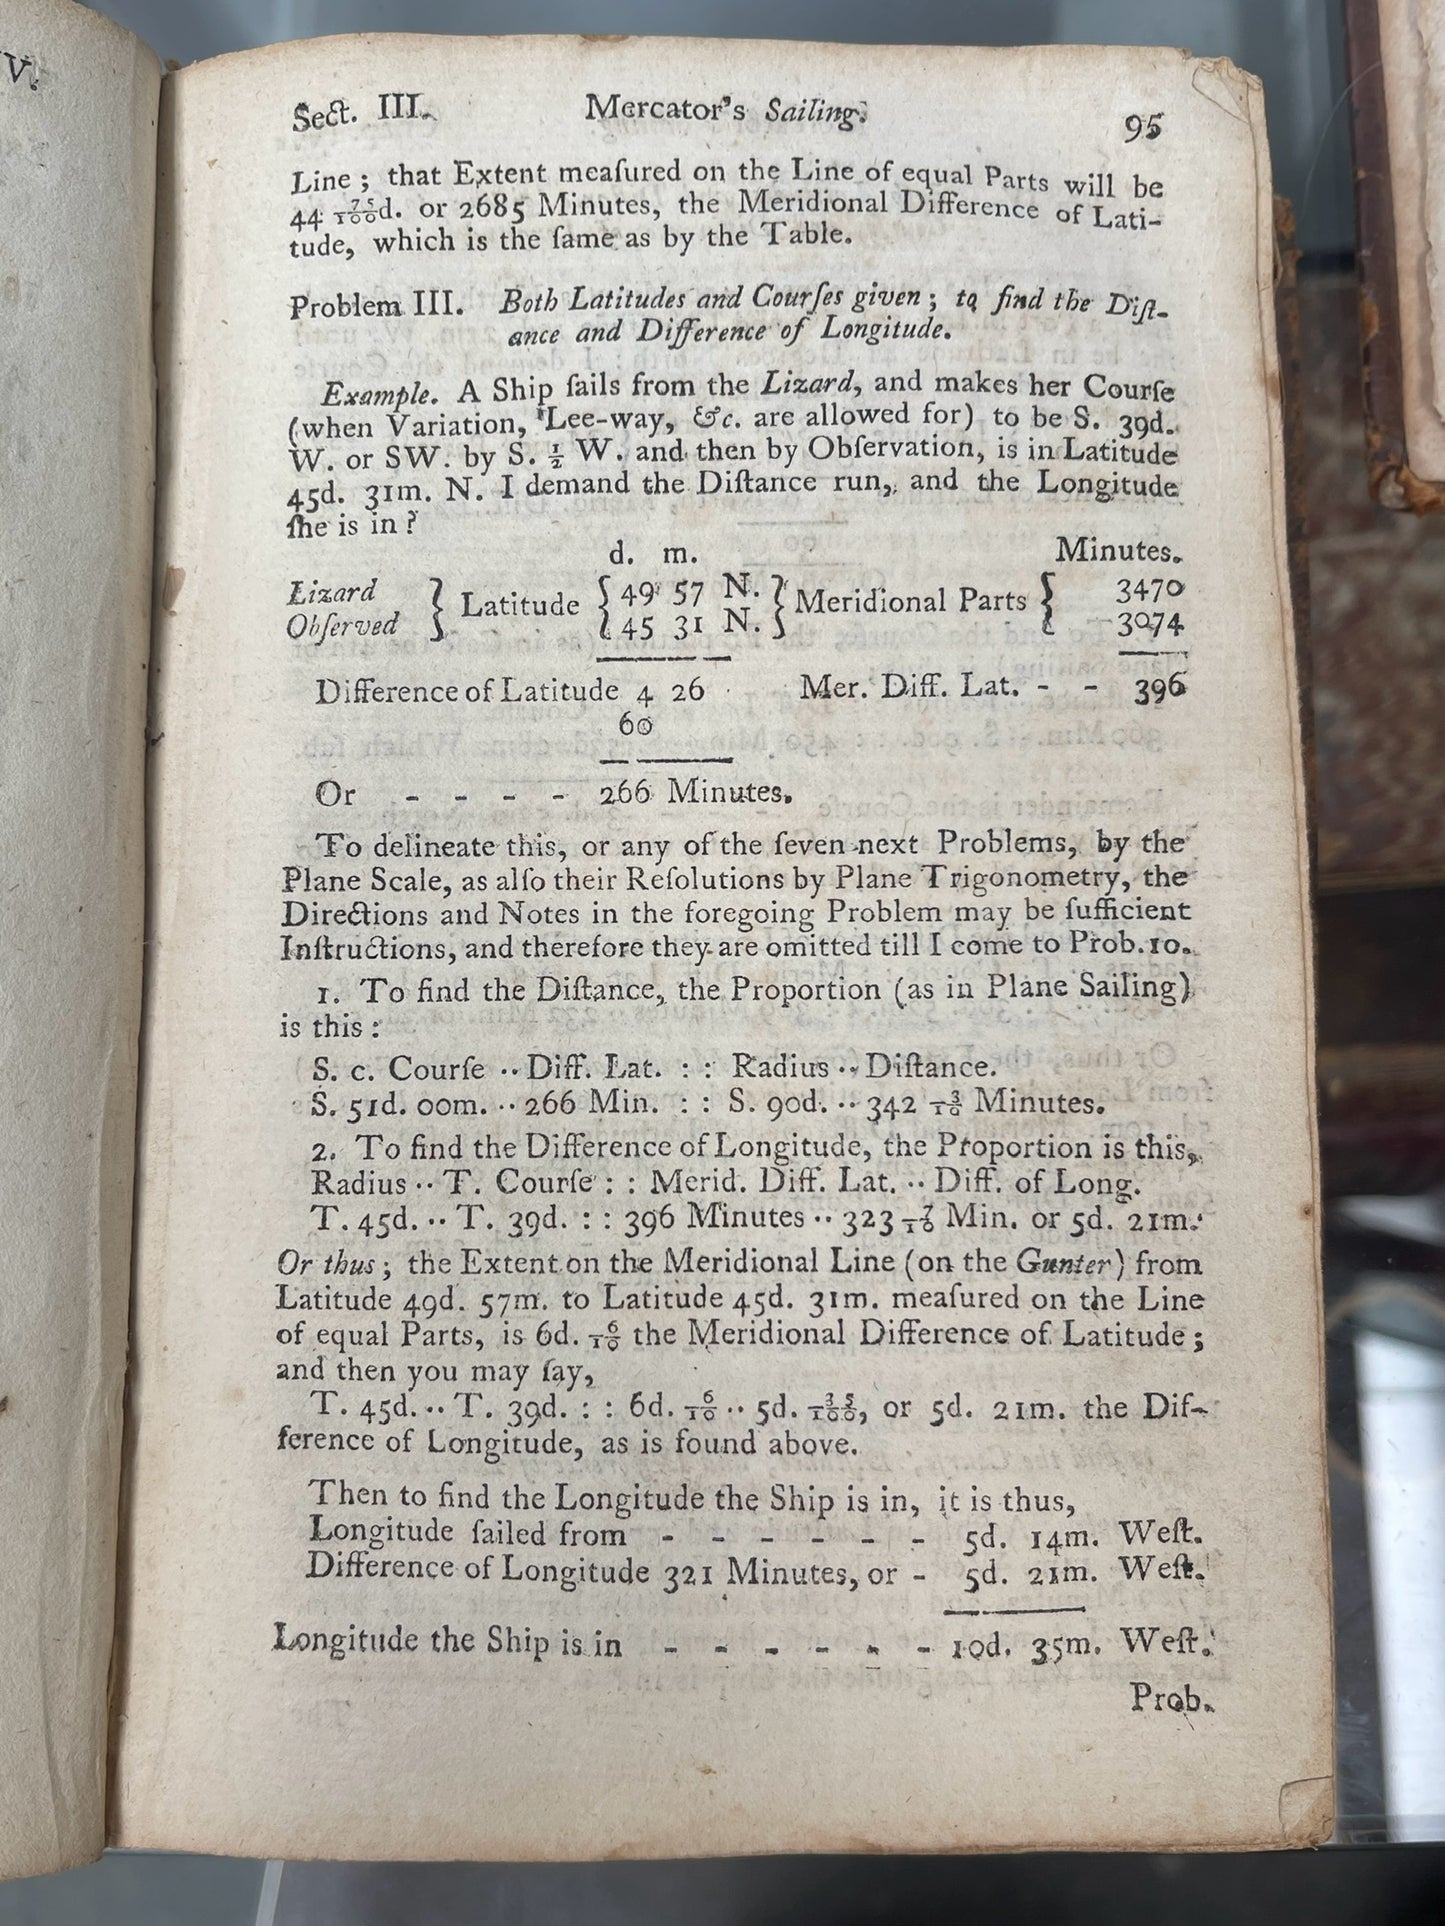 V.
Sect. III. Mercator's Sailing. 95
Line; that Extent meaſured on the Line of equal Parts will be
44 75/100d. or 2685 Minutes, the Meridional Difference of Lati-
tude, which is the ſame as by the Table.
Problem III. Both Latitudes and Courſes given; to find the Diſt-
ance and Difference of Longitude.
Example. A Ship ſails from the Lizard, and makes her Courſe
(when Variation, Lee-way, &c. are allowed for) to be S. 39d.
W. or SW. by S. ½ W. and then by Obſervation, is in Latitude
45d. 31m. N. I demand the Diſtance run, and the Longitude
ſhe is in?
d. m. Minutes.
Lizard } Latitude { 49 57 N. } Meridional Parts { 3470
Obſerved } { 45 31 N. } { 3074
Difference of Latitude 4 26 Mer. Diff. Lat. - - 396
60
Or - - - - 266 Minutes.
To delineate this, or any of the ſeven next Problems, by the
Plane Scale, as alſo their Reſolutions by Plane Trigonometry, the
Directions and Notes in the foregoing Problem may be ſufficient
Inſtructions, and therefore they are omitted till I come to Prob. 10.
1. To find the Diſtance, the Proportion (as in Plane Sailing)
is this:
S. c. Courſe ·· Diff. Lat. : : Radius ·· Diſtance.
S. 51d. 00m. ·· 266 Min. : : S. 90d. ·· 342 3/10 Minutes.
2. To find the Difference of Longitude, the Proportion is this,
Radius ·· T. Courſe : : Merid. Diff. Lat. ·· Diff. of Long.
T. 45d. ·· T. 39d. : : 396 Minutes ·· 323 7/10 Min. or 5d. 21m.
Or thus; the Extent on the Meridional Line (on the Gunter) from
Latitude 49d. 57m. to Latitude 45d. 31m. meaſured on the Line
of equal Parts, is 6d. 6/10 the Meridional Difference of Latitude;
and then you may ſay,
T. 45d. ·· T. 39d. : : 6d. 6/10 ·· 5d. 35/100, or 5d. 21m. the Dif-
ference of Longitude, as is found above.
Then to find the Longitude the Ship is in, it is thus,
Longitude ſailed from - - - - - - 5d. 14m. Weſt.
Difference of Longitude 321 Minutes, or - 5d. 21m. Weſt.
Longitude the Ship is in - - - - - - 10d. 35m. Weſt.
Prob.